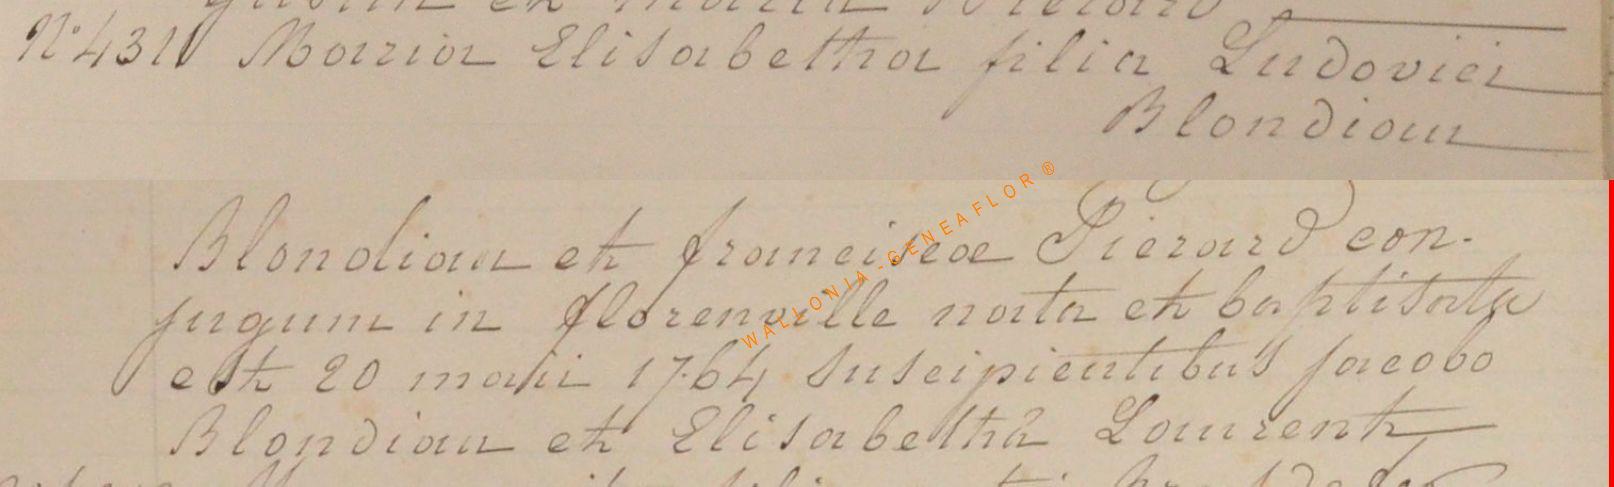 et Maria Pierard
N° 431 Maria Elisabetha filia Ludovici
Blondiau
Blondiau et franciscae Pierard con-
jugum in florenville nata et baptisata
est 20 maii 1764 suscipientibus jacobo
Blondiau et Elisabetha Laurent
WALLONIA-GENEAFLOR ®